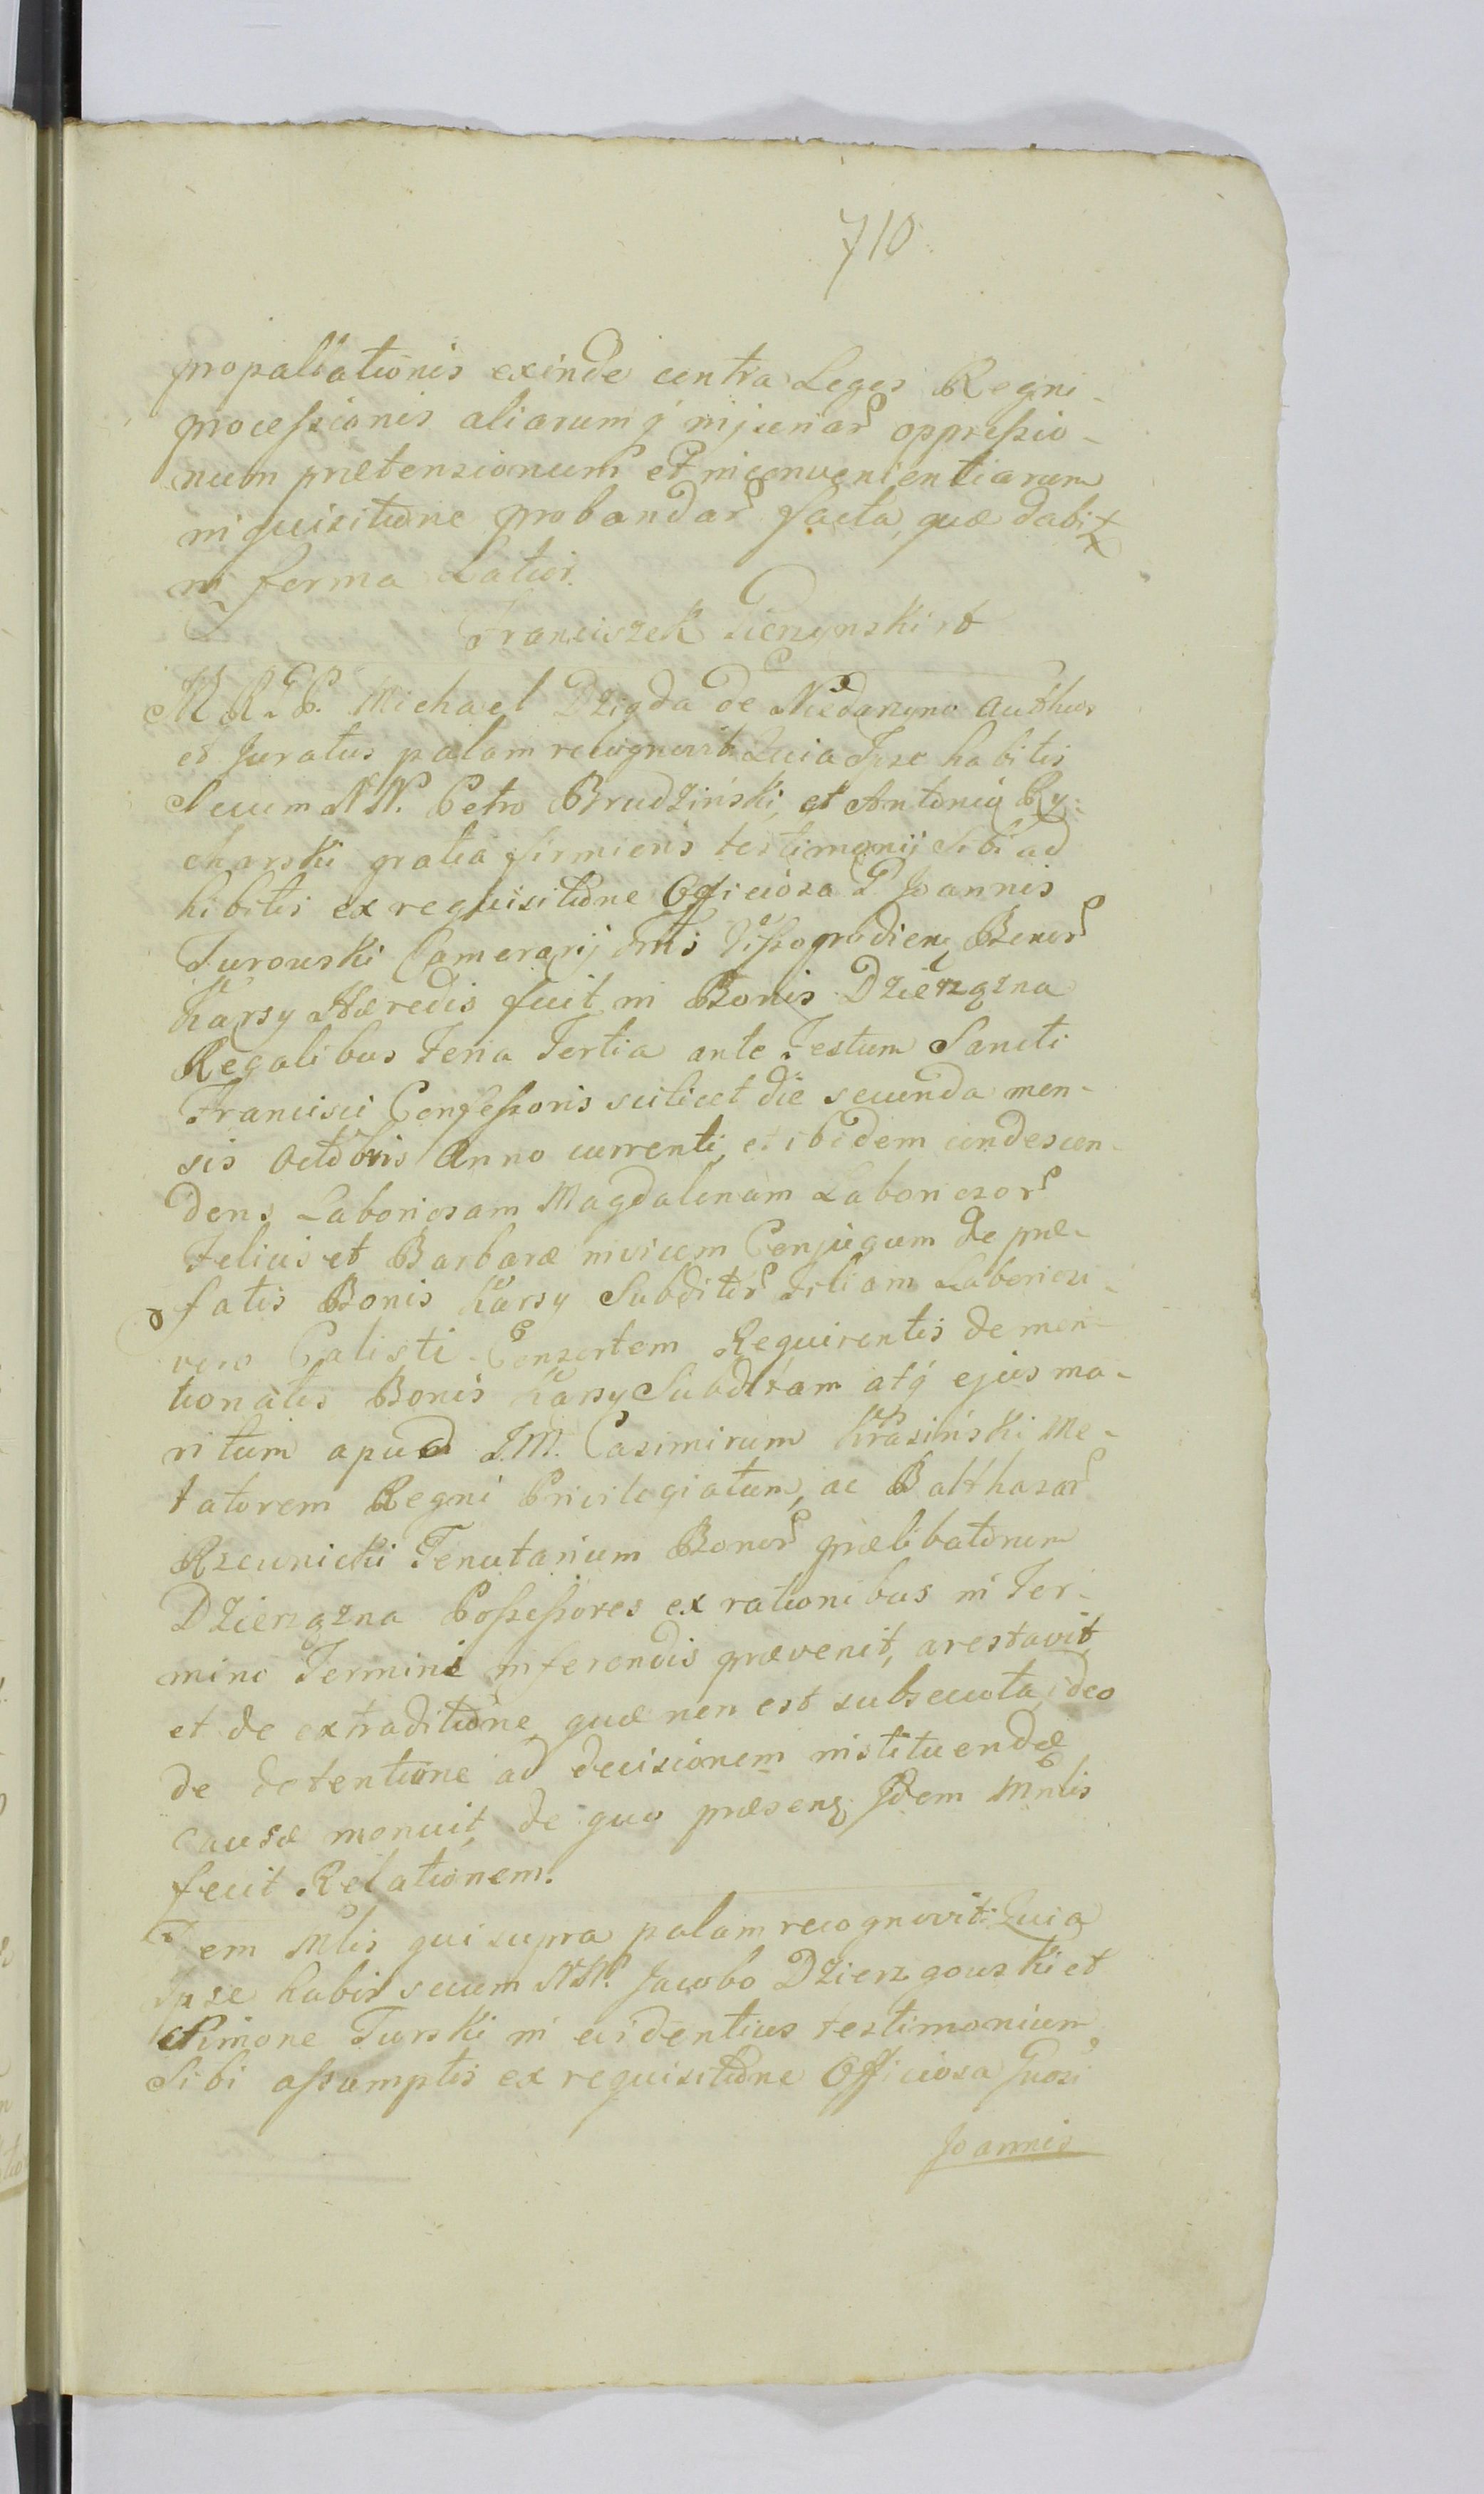 710
propallationis exinde contra Leges Regni
processionis aliarumq́ injuriar oppressio-
num prætensionum et inconvenientiarum
inquisitione probandar facta, quæ dabit
in forma Latior.
Franciszek
M. R. G. P. Michael Dzigda de Niedarzyno Authus
et Juratus palam recognovit Quia Ipse habitis
Secum NN. Petro Brudziński, et Antonio Ry-
charski gratia firmioris testimonij Sibi ad
hibitis ex requisitione Officiosa G Joannis
Turowski Camerarij Vissogrodien Bonor
Karsy Hæredis fuit in Bonis Dzierzązna
Regalibus Feria Tertia ante Festum Sancti
Francisci Confessoris scilicet die secunda men-
sis Octobris Anno currenti, et ibidem condescen-
dens Laboriosam Magdalenam Laboriosor
Felicis et Barbaræ invicem Conjugum de præ-
fatis Bonis Karsy Subditor Filiam Laboriosi
vero Calisti Consortem Requirentis de men-
tionatis Bonis Karsy Subditam atq́ ejus ma-
ritum apud I.M. Casimirum Krasiński Me-
tatorem Regni Privilegiatum, ac Balthasar
Rzewnicki Tenutarium Bonor prælibatorum
Dzierzązna Possessores ex rationibus in Ter-
mino Termini inferendis prævenit, arestavit,
et de extraditione quæ non est subsecuta, ideo
de detentione ad decisionem instituendæ
causæ monuit, de quo præsens Idem Mnlis
fecit Relationem.
Idem Mlis qui supra palam recognovit Quia
Ipse habis secum NN. Jacobo Dzierzgowski et
Simone Turski in evidentius testimonium
Sibi assumptis ex requisitione Officiosa Gnosi
Joannis